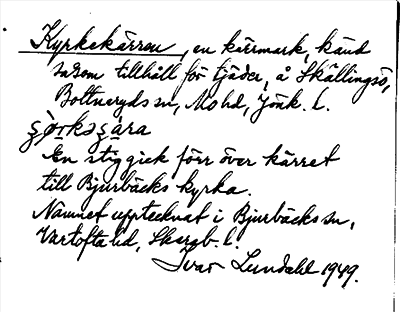 Kyrkekärren, en kärrmark, känd
såsom tillhåll för tjäder, å Skällingsö,
Bottnaryds sn, Mo hd, Jönk. l.
En stig gick förr över kärret
till Bjurbäcks kyrka.
Namnet upptecknat i Bjurbäcks sn,
Vartofta hd, Skarab. l.
Ivar Lundahl 1949.